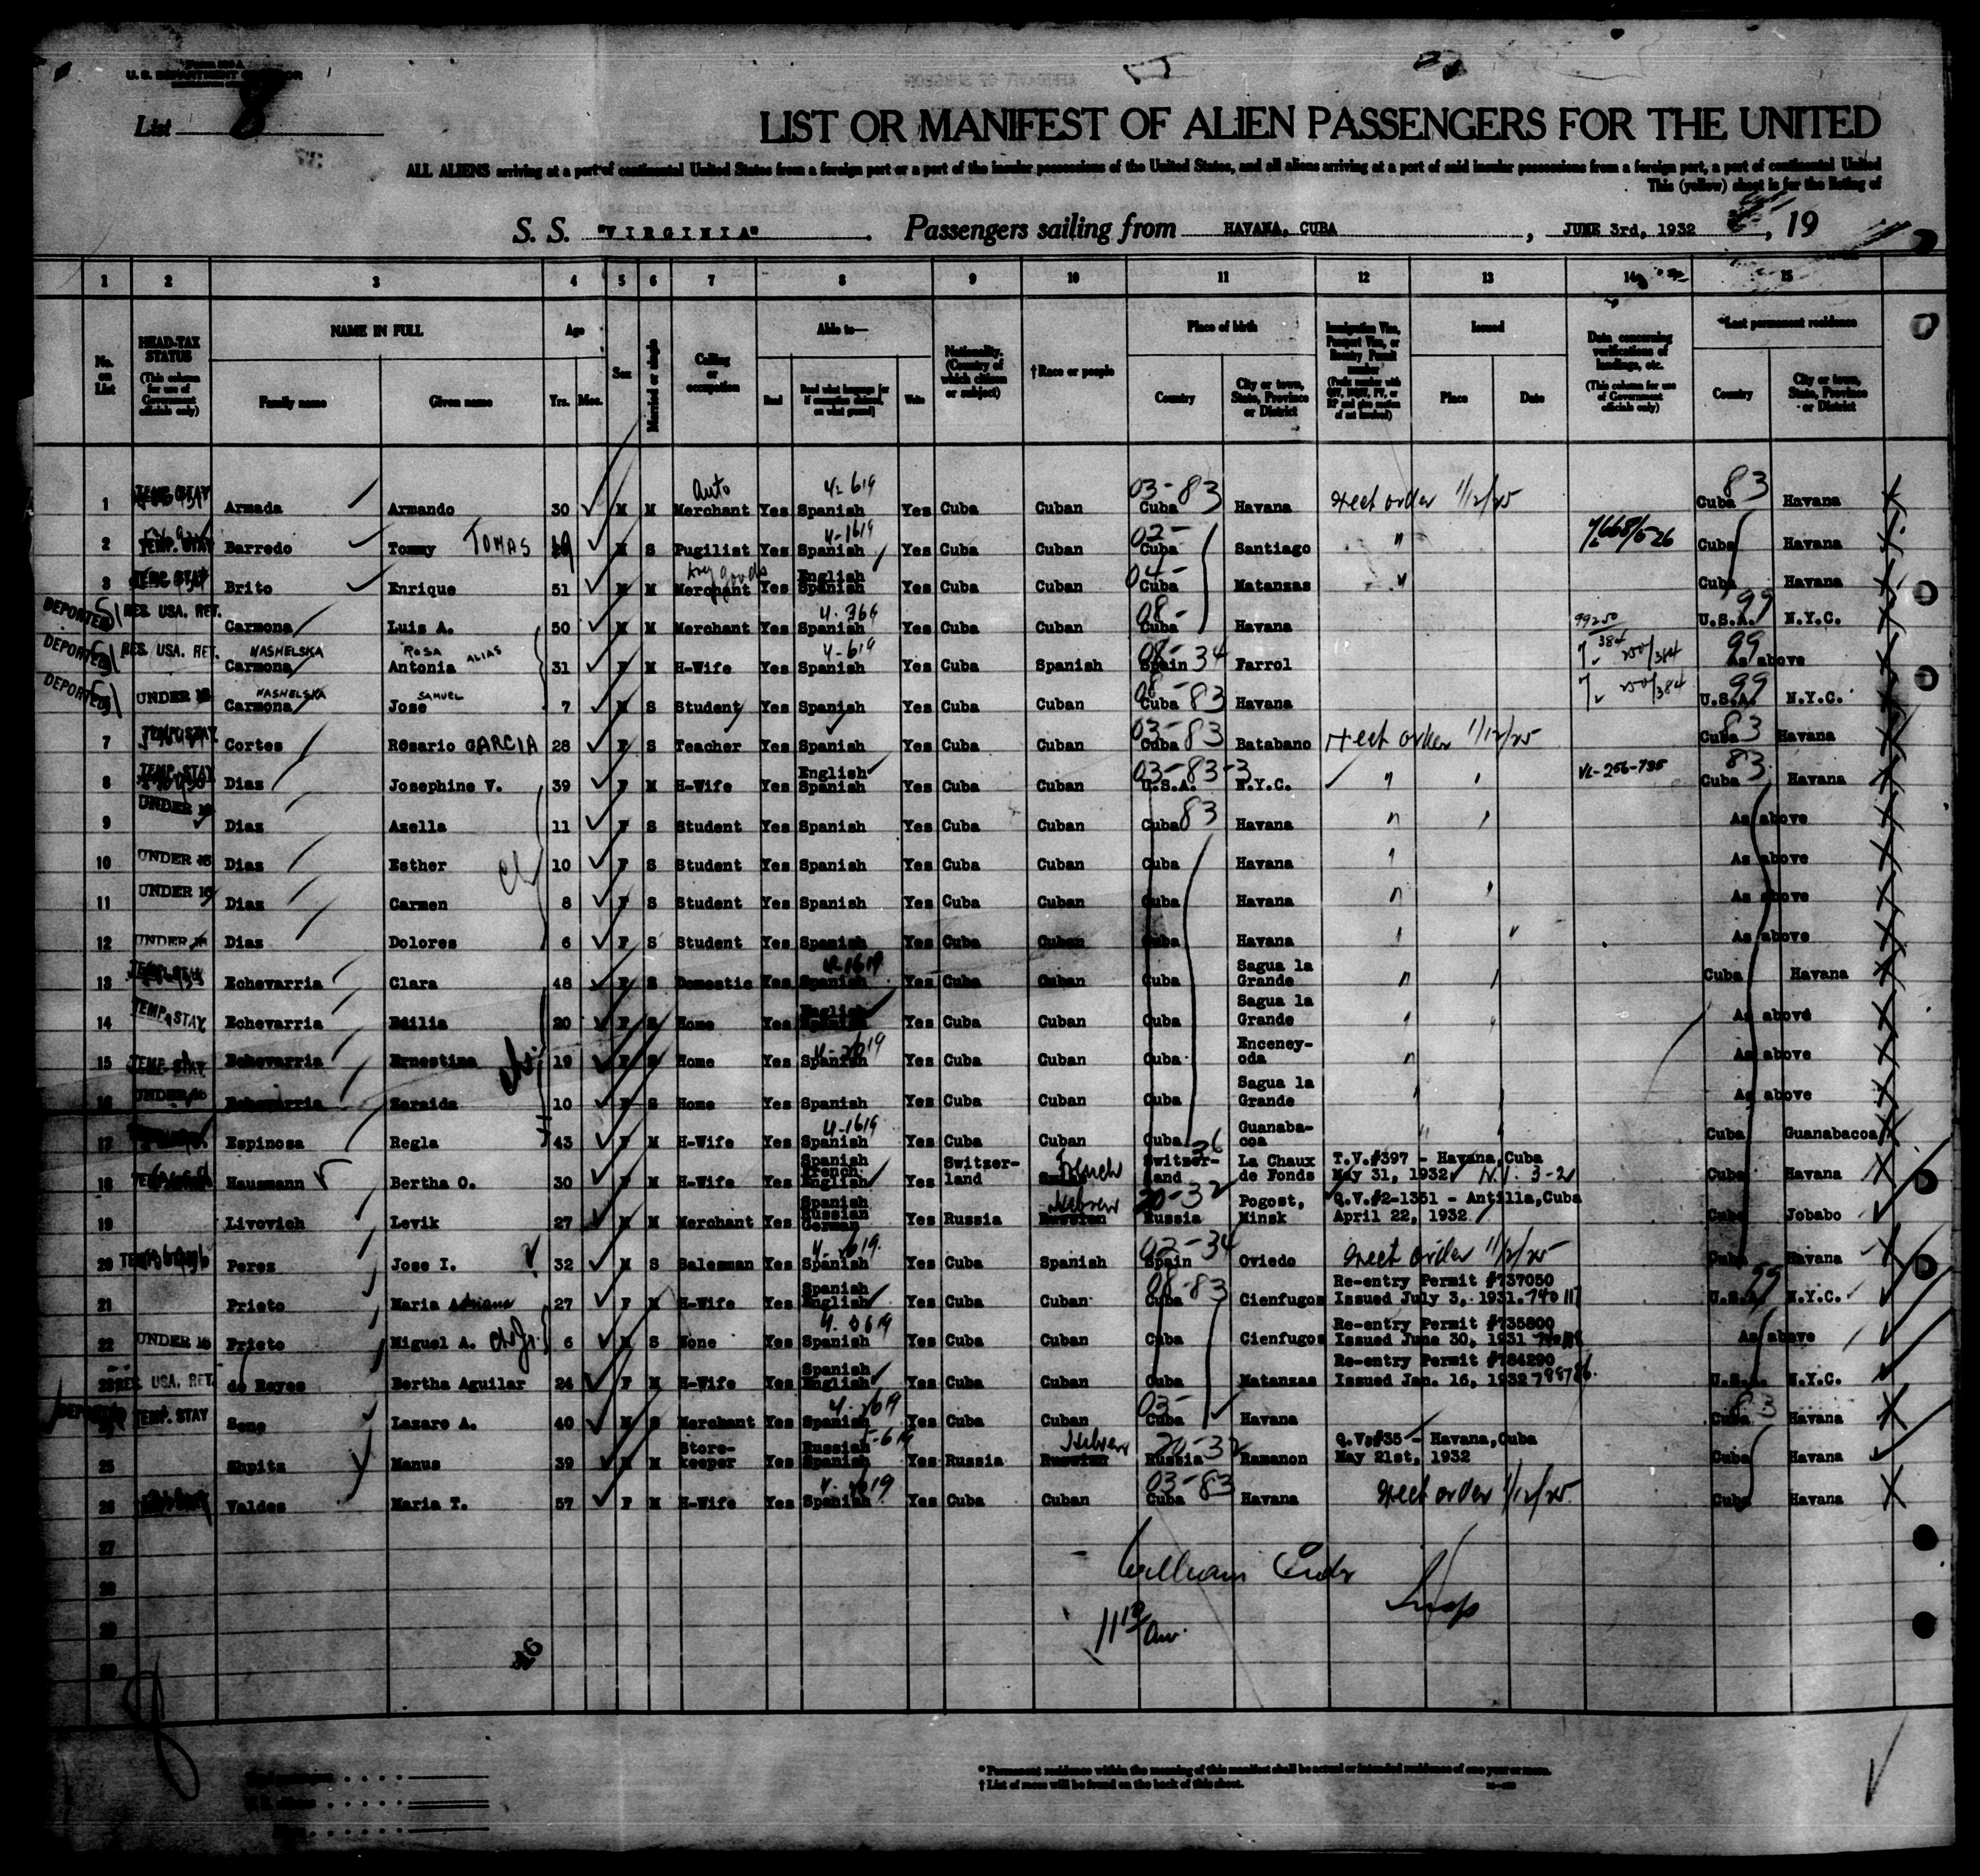 U. S. DEPARTMENT OF LABOR
List 8
LIST OR MANIFEST OF ALIEN PASSENGERS FOR THE UNITED
ALL ALIENS arriving at a port of continental United States from a foreign port or a port of the insular possessions of the United States, and all aliens arriving at a port of said insular possessions from a foreign port, a port of continental United
This (yellow) sheet is for the listing of
S. S. "VIRGINIA" Passengers sailing from HAVANA, CUBA , JUNE 3rd, 1932 , 19
1 2 3 4 5 6 7 8 9 10 11 12 13 14 15
No. on List
HEAD-TAX STATUS (This column for use of Government officials only)
NAME IN FULL
Family name Given name
Age
Yrs. Mos.
Sex
Married or single
Calling or occupation
Able to—
Read Read what language (or if exemption claimed, on what ground) Write
Nationality. (Country of which citizen or subject)
†Race or people
Place of birth
Country City or town, State, Province or District
Immigration Visa, Passport Visa, or Reentry Permit number
Issued
Place Date
Data concerning verifications of landings, etc. (This column for use of Government officials only)
*Last permanent residence
Country City or town, State, Province or District
1 TEMP STAY Armada Armando 30 M M Auto Merchant Yes Spanish 4-619 Yes Cuba Cuban Cuba 03-83 Havana 1/12/25 Cuba 83 Havana
2 TEMP. STAY Barredo Tommy TOMAS 19 M S Pugilist Yes Spanish 4-1619 Yes Cuba Cuban Cuba 02- Santiago " Cuba Havana
3 TEMP STAY Brito Enrique 51 M M Dry goods Merchant Yes English Spanish Yes Cuba Cuban Cuba 04- Matanzas " Cuba Havana
DEPORTED RES. USA. RET. Carmona Luis A. 50 M M Merchant Yes Spanish Yes Cuba Cuban Cuba 08- Havana 99250/384 U.S.A. 99 N.Y.C.
DEPORTED RES. USA. RET. NASHELSKA Carmona ROSA ALIAS Antonia 31 F M H-Wife Yes Spanish 4-619 Yes Cuba Spanish Spain 08-34 Farrol As above 99
DEPORTED UNDER 16 NASHELSKA Carmona SAMUEL Jose 7 M S Student Yes Spanish Yes Cuba Cuban Cuba 08-83 Havana U.S.A. 99 N.Y.C.
7 TEMP STAY Cortes Rosario GARCIA 28 F S Teacher Yes Spanish Yes Cuba Cuban Cuba 03-83 Batabano 1/12/25 Cuba 83 Havana
8 TEMP. STAY Dias Josephine V. 39 F M H-Wife Yes English Spanish Yes Cuba Cuban U.S.A. 03-83-3 N.Y.C. " VL-256-735 Cuba 83 Havana
9 UNDER 16 Dias Azella 11 F S Student Yes Spanish Yes Cuba Cuban Cuba 83 Havana " As above
10 UNDER 16 Dias Esther 10 F S Student Yes Spanish Yes Cuba Cuban Cuba Havana As above
11 UNDER 16 Dias Carmen 8 F S Student Yes Spanish Yes Cuba Cuban Cuba Havana " As above
12 UNDER 16 Dias Dolores 6 F S Student Yes Spanish Yes Cuba Cuban Cuba Havana As above
13 Echevarria Clara 48 F S Domestic Yes Spanish Yes Cuba Cuban Cuba Sagua la Grande " Cuba Havana
14 TEMP. STAY Echevarria Edilia 20 F S Home Yes English Spanish Yes Cuba Cuban Cuba Sagua la Grande As above
15 TEMP. STAY Echevarria Ernestina 19 F S Home Yes Spanish Yes Cuba Cuban Cuba Enceney-oda " As above
16 UNDER 16 Echevarria Zoraida 10 F S Home Yes Spanish Yes Cuba Cuban Cuba Sagua la Grande As above
17 Espinosa Regla 43 F M H-Wife Yes Spanish 4-1619 Yes Cuba Cuban Cuba Guanaba-coa " Cuba Guanabacoa
18 Hausmann Bertha O. 30 F M H-Wife Yes Spanish French English Yes Switzer-land French Switzer-land La Chaux de Fonds T.V.#397 - Havana,Cuba May 31, 1932 Cuba Havana
19 Livovich Levik 27 M M Merchant Yes Spanish Russian German Yes Russia Hebrew Russian Russia 20-32 Pogost, Minsk Q.V.#2-1351 - Antilla,Cuba April 22, 1932 Cuba Jobabo
20 Perez Jose I. 32 M S Salesman Yes Spanish Yes Cuba Spanish Spain 02-34 Oviedo Cuba Havana
21 Prieto Maria Adriana 27 F M H-Wife Yes Spanish English Yes Cuba Cuban Cuba 08-83 Cienfugos Re-entry Permit #737050 Issued July 3, 1931. U.S.A. 99 N.Y.C.
22 UNDER 16 Prieto Miguel A. 6 M S None Yes Spanish Yes Cuba Cuban Cuba Cienfugos Re-entry Permit #735800 Issued June 30, 1931 As above
23 RES. USA. RET. de Reyes Bertha Aguilar 24 F M H-Wife Yes Spanish English Yes Cuba Cuban Cuba Matanzas Re-entry Permit #784290 Issued Jan. 16, 1932 788786 U.S.A. N.Y.C.
DEPORTED TEMP. STAY Sene Lazaro A. 40 M S Merchant Yes Spanish Yes Cuba Cuban Cuba 03- Havana Cuba 83 Havana
25 Shpitz Manus 39 M M Store-keeper Yes Russian Spanish Yes Russia Hebrew Russian Russia 20-32 Ramanon Q.V.#35 - Havana,Cuba May 21st, 1932 Cuba Havana
26 Valdes Maria T. 57 F M H-Wife Yes Spanish Yes Cuba Cuban Cuba 03-83 Havana 1/12/25 Cuba Havana
27
28
29
30
William
Insp
26
* Permanent residence within the meaning of this manifest shall be actual or intended residence of one year or more.
† List of races will be found on the back of this sheet.